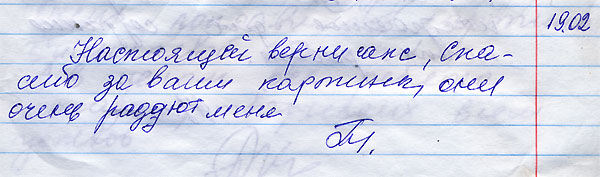 19.02
Настоящий вернисаж, спа-
сибо за ваши картинки, они
очень радуют меня
Т.